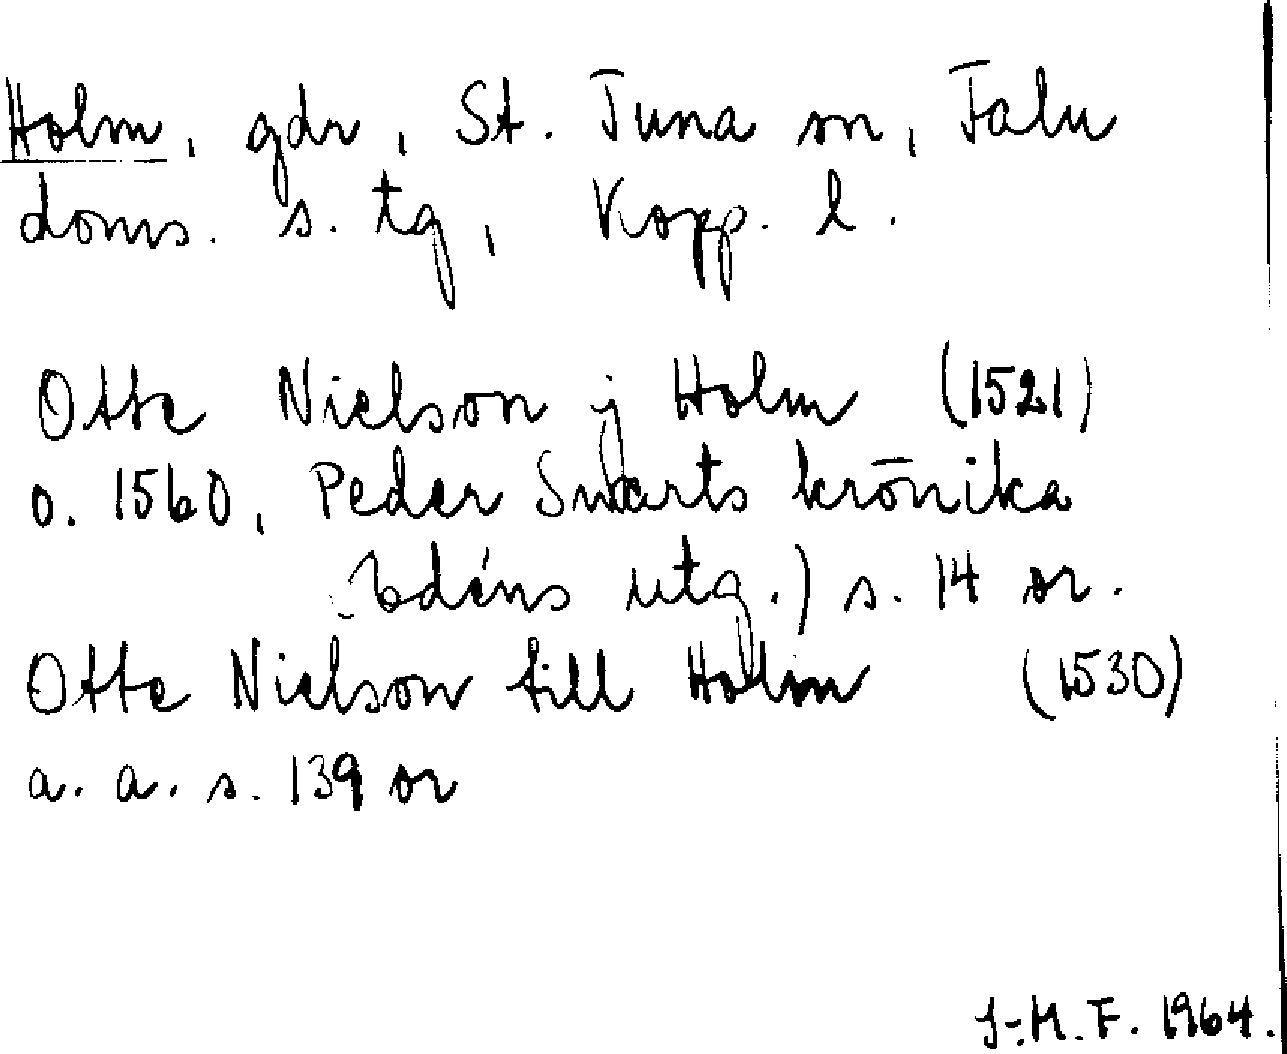 Holm, gdr, St. Tuna sn, Falu
doms. s. tg, Kopp. l.
Otte Nielson ij Holm (1521)
o. 1560, Peder Swarts krönika
Edéns utg.) s. 14 or.
Otte Nielson till Holm (1530)
a. a. s. 139 or
J-H. F. 1964.